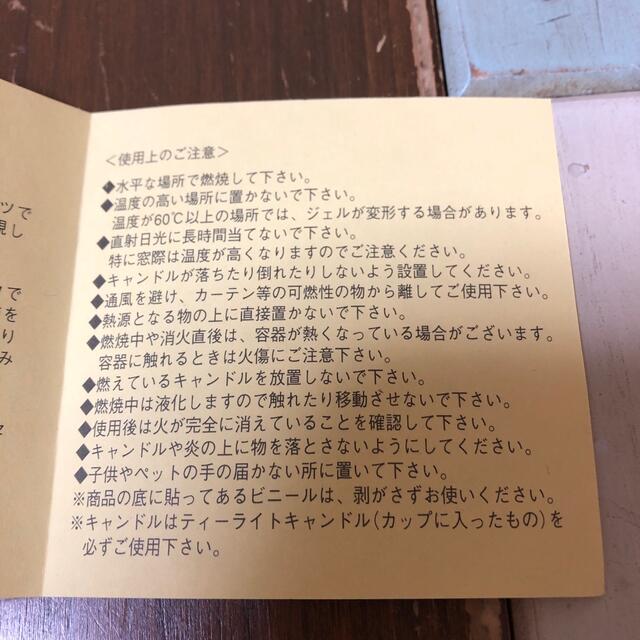 ツで
現し
で
を
り
み
<使用上のご注意>
◆水平な場所で燃焼して下さい。
◆温度の高い場所に置かないで下さい。
温度が60℃以上の場所では、ジェルが変形する場合があります。
◆直射日光に長時間当てないで下さい。
特に窓際は温度が高くなりますのでご注意ください。
◆キャンドルが落ちたり倒れたりしないよう設置してください。
◆通風を避け、カーテン等の可燃性の物から離してご使用下さい。
◆熱源となる物の上に直接置かないで下さい。
◆燃焼中や消火直後は、容器が熱くなっている場合がございます。
容器に触れるときは火傷にご注意下さい。
◆燃えているキャンドルを放置しないで下さい。
◆燃焼中は液化しますので触れたり移動させないで下さい。
◆使用後は火が完全に消えていることを確認して下さい。
◆キャンドルや炎の上に物を落とさないようにしてください。
◆子供やペットの手の届かない所に置いて下さい。
※商品の底に貼ってあるビニールは、剥がさずお使いください。
※キャンドルはティーライトキャンドル(カップに入ったもの)を
必ずご使用下さい。